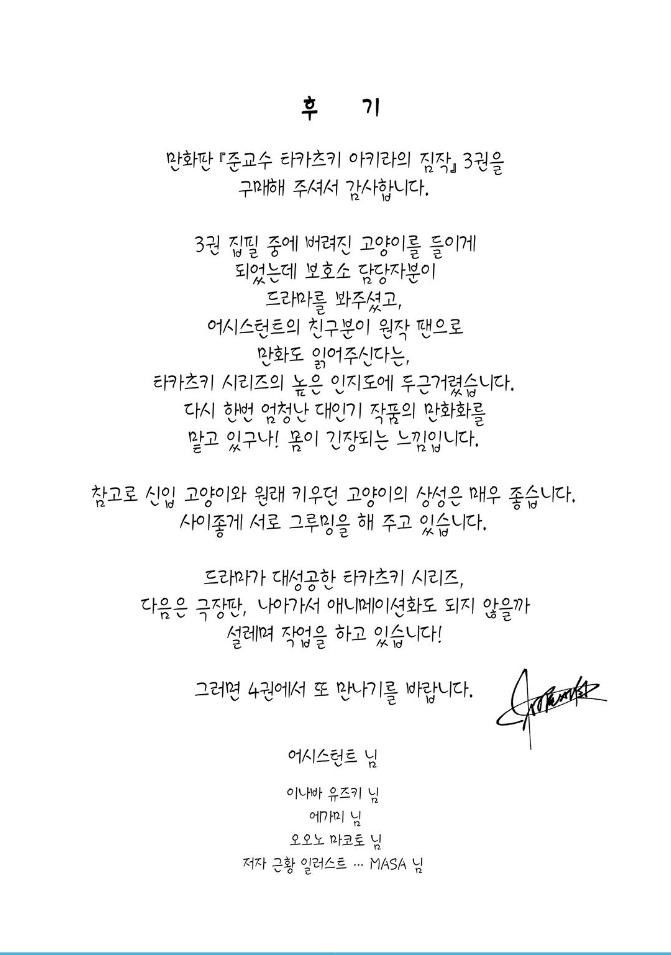 후 기
만화판 『준교수 타카츠키 아키라의 짐작』 3권을
구매해 주셔서 감사합니다.
3권 집필 중에 버려진 고양이를 들이게
되었는데 보호소 담당자분이
드라마를 봐주셨고,
어시스턴트의 친구분이 원작 팬으로
만화도 읽어주신다는,
타카츠키 시리즈의 높은 인지도에 두근거렸습니다.
다시 한번 엄청난 대인기 작품의 만화화를
맡고 있구나! 몸이 긴장되는 느낌입니다.
참고로 신입 고양이와 원래 키우던 고양이의 상성은 매우 좋습니다.
사이좋게 서로 그루밍을 해 주고 있습니다.
드라마가 대성공한 타카츠키 시리즈,
다음은 극장판, 나아가서 애니메이션화도 되지 않을까
설레며 작업을 하고 있습니다!
그러면 4권에서 또 만나기를 바랍니다.
어시스턴트 님
이나바 유즈키 님
에가미 님
오오노 마코토 님
저자 근황 일러스트 … MASA 님